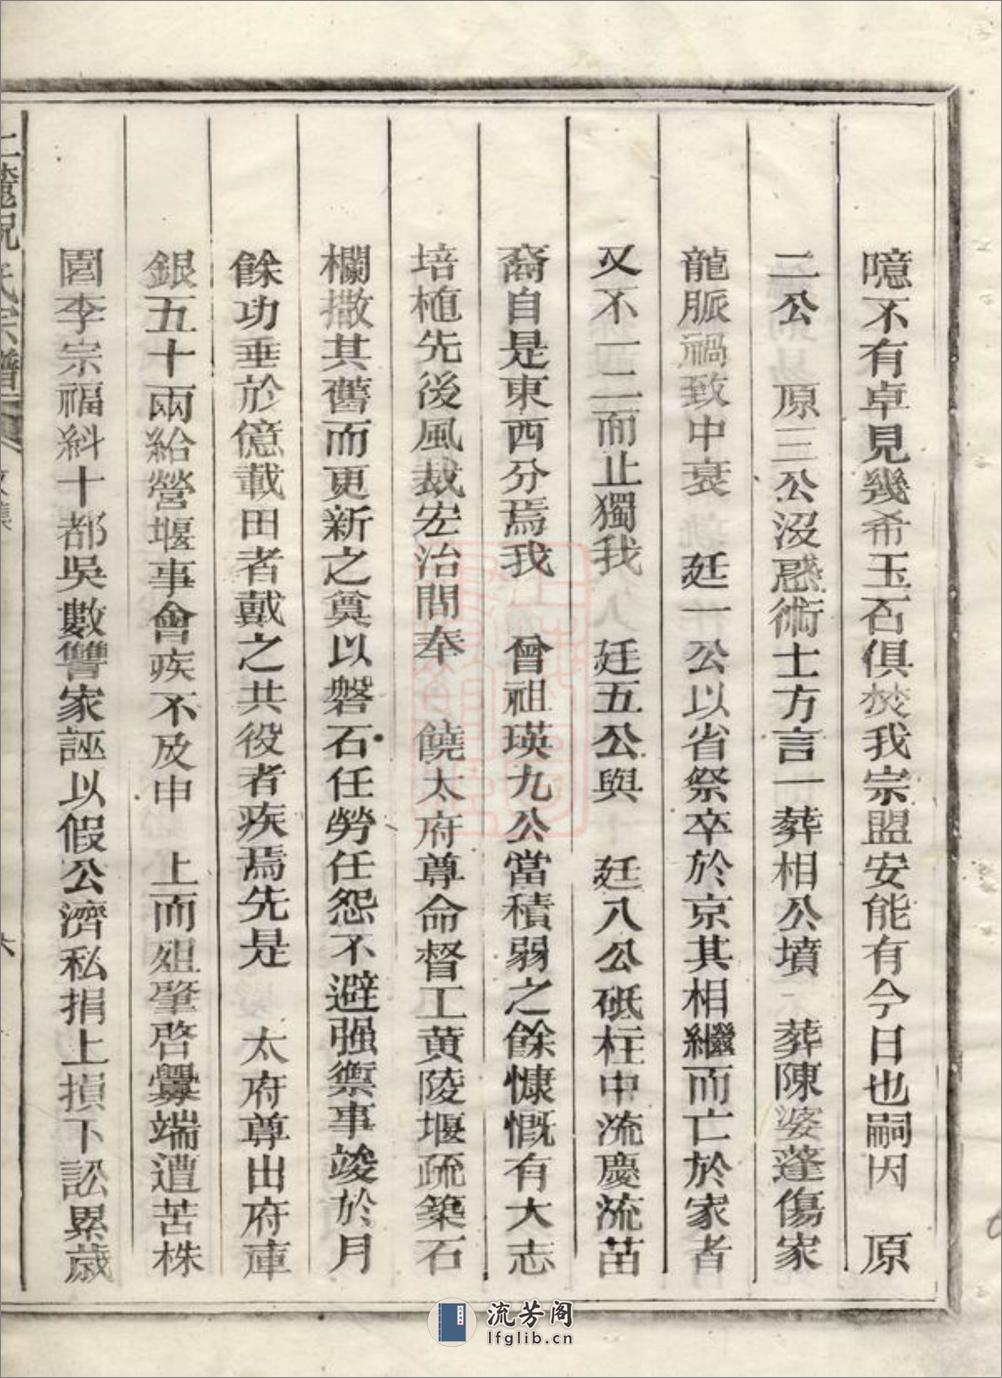 噫不有卓見幾希玉石俱焚我宗盟安能有今日也嗣因　原
二公　原三公沒惑術士方言一葬相公墳　葬陳婆蓬傷家
龍脈禍致中衰　廷一公以省祭卒於京其相繼而亡於家者
又不一二而止獨我　廷五公與　廷八公砥柱中流慶流苗
裔自是東西分焉我　曾祖瑛九公當積弱之餘慷慨有大志
培植先後風裁宏治間奉　饒太府尊命督工黄陵堰疏築石
欄撒其舊而更新之奠以磐石任勞任怨不避强禦事竣於月
餘功垂於億載田者戴之共役者疾焉先是　太府尊出府庫
銀五十兩給營堰事會疾不及申　上而殂肇啓釁端遭苦株
園李宗福糾十都吳數讐家誣以假公濟私捐上損下訟累歲
氏宗譜
六
流芳阁
lfglib.cn